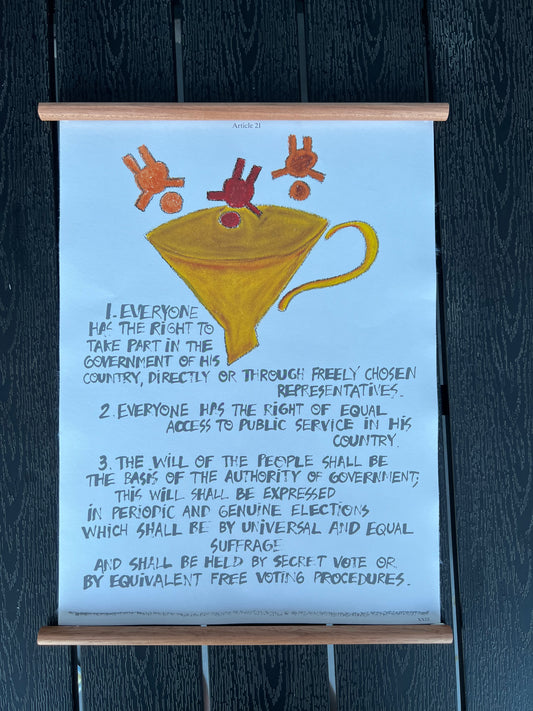 Article 21
1. EVERYONE
HAS THE RIGHT TO
TAKE PART IN THE
GOVERNMENT OF HIS
COUNTRY, DIRECTLY OR THROUGH FREELY CHOSEN
REPRESENTATIVES.
2. EVERYONE HAS THE RIGHT OF EQUAL
ACCESS TO PUBLIC SERVICE IN HIS
COUNTRY.
3. THE WILL OF THE PEOPLE SHALL BE
THE BASIS OF THE AUTHORITY OF GOVERNMENT;
THIS WILL SHALL BE EXPRESSED
IN PERIODIC AND GENUINE ELECTIONS
WHICH SHALL BE BY UNIVERSAL AND EQUAL
SUFFRAGE
AND SHALL BE HELD BY SECRET VOTE OR
BY EQUIVALENT FREE VOTING PROCEDURES.